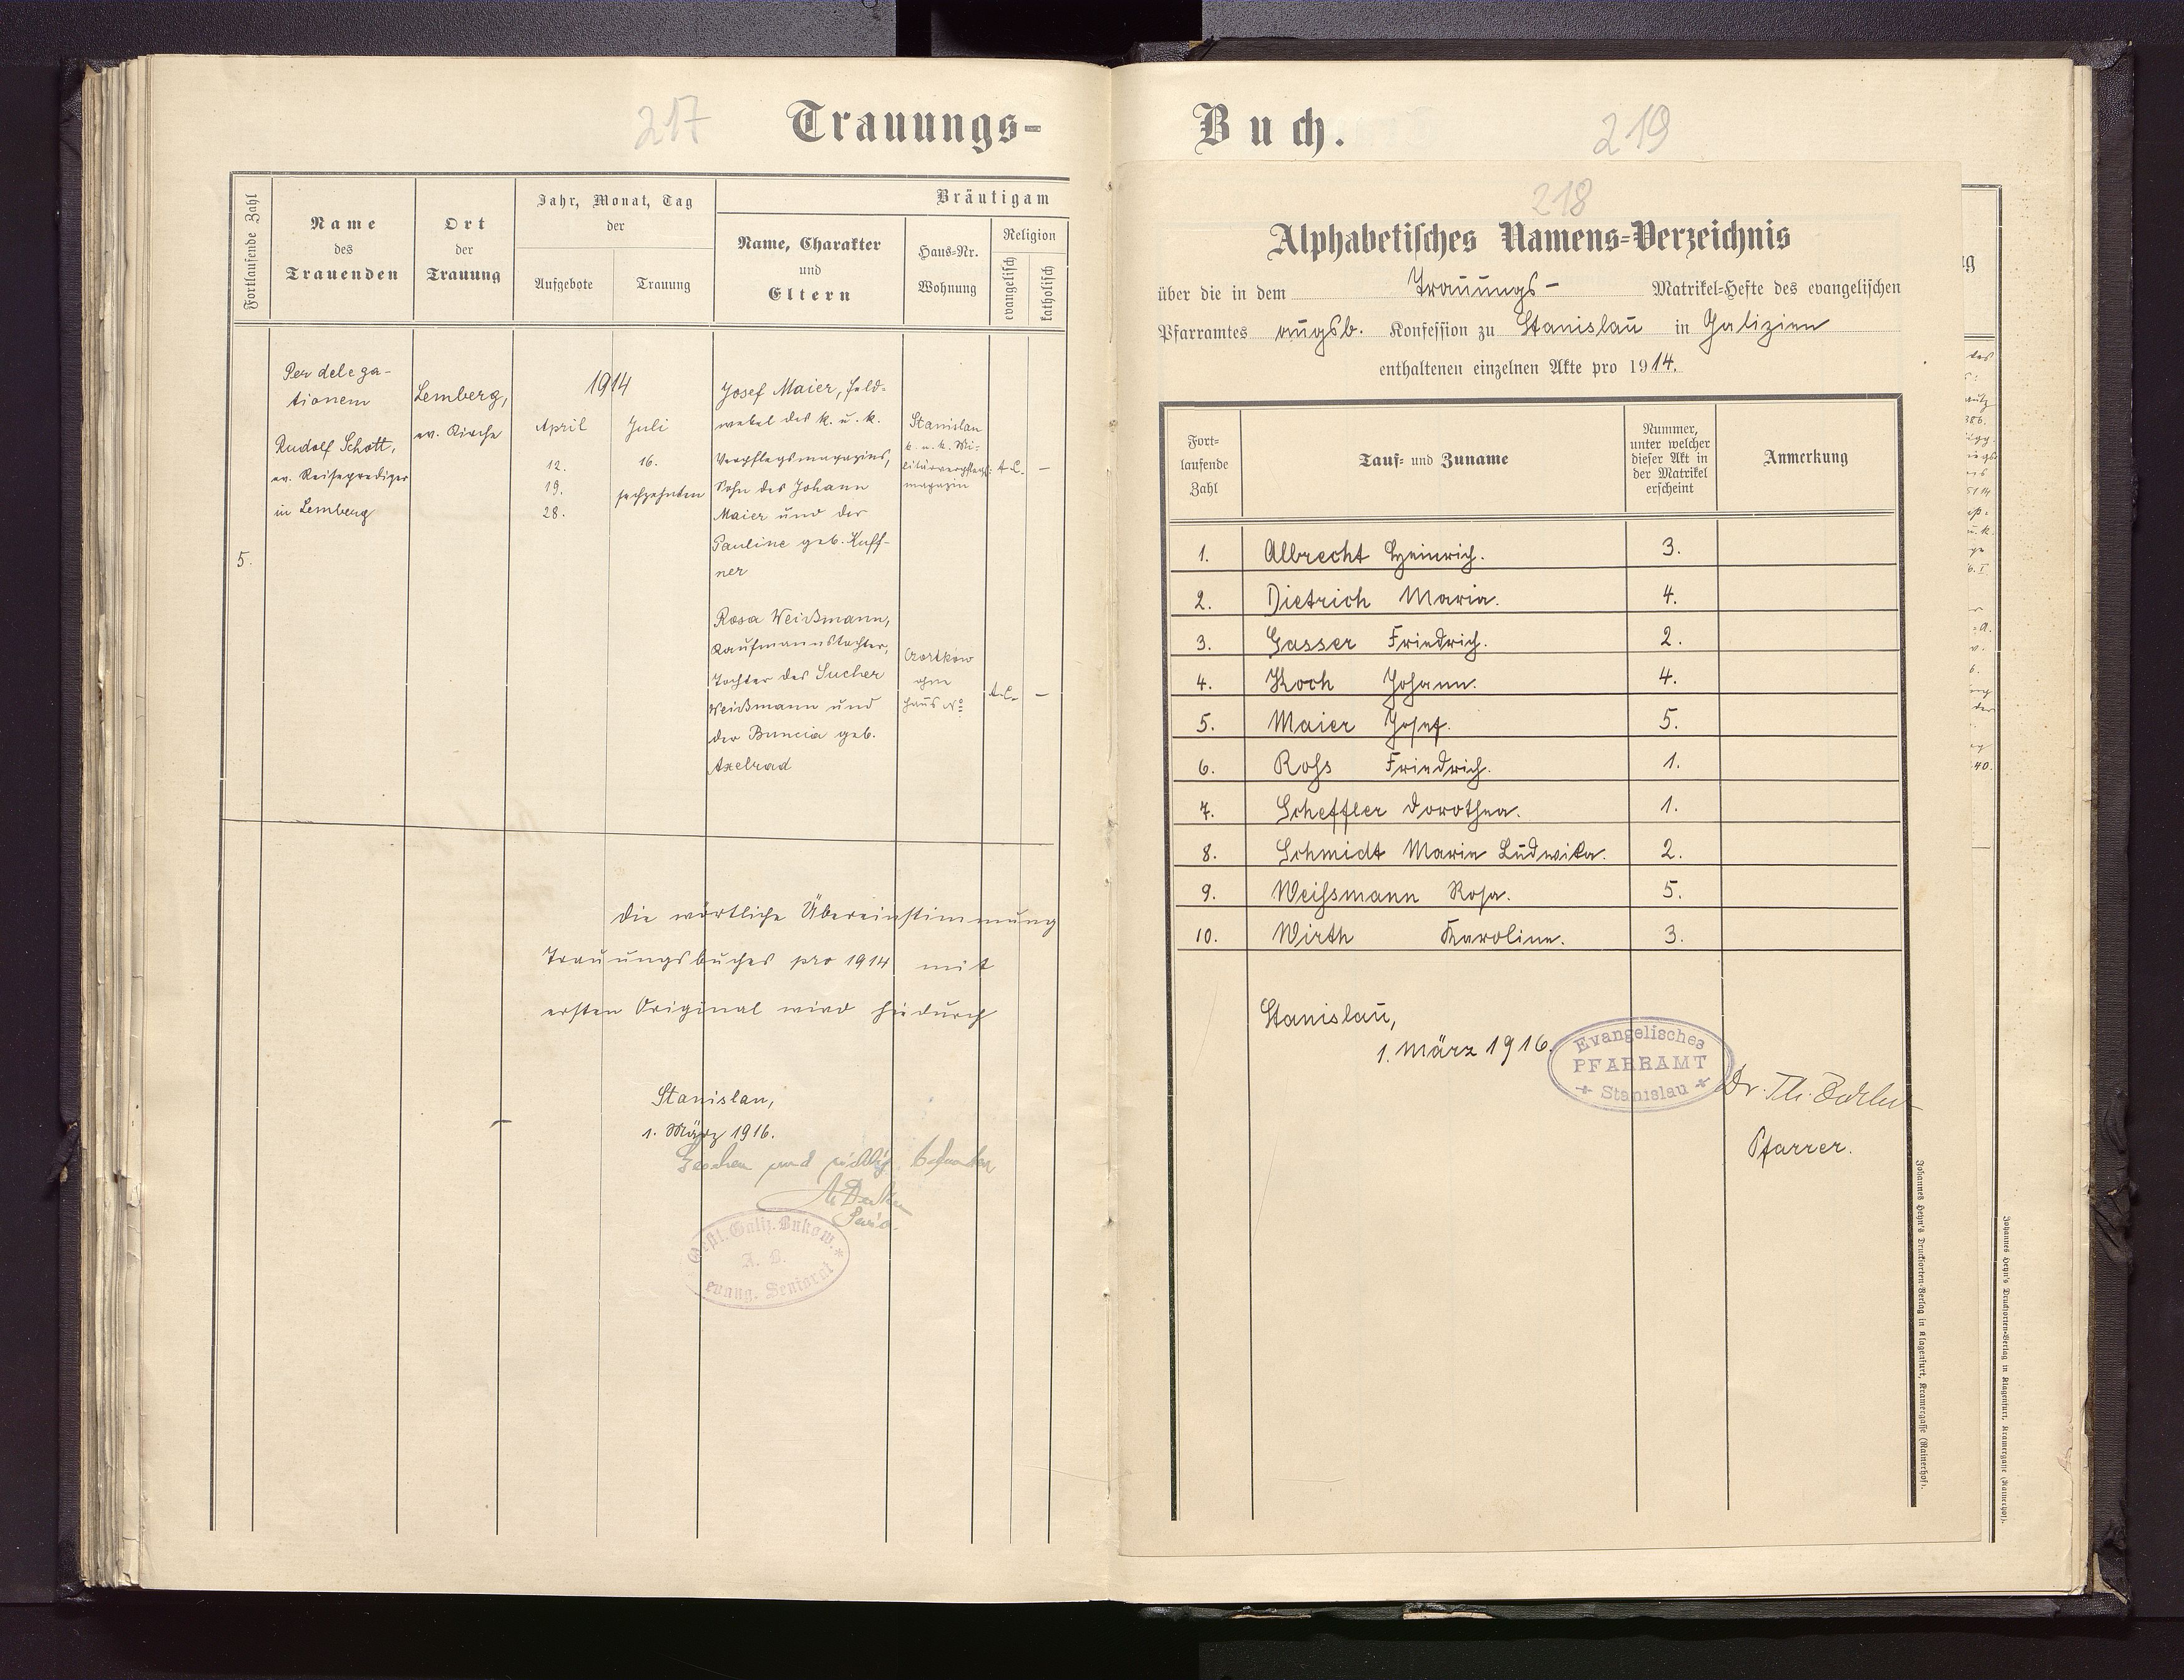 217
Trauungs-
Fortlaufende Zahl
Name
des
Trauenden
Ort
der
Trauung
Jahr, Monat, Tag
der
Aufgebote
Trauung
Bräutigam
Name, Charakter
und
Eltern
Haus-Nr.
Wohnung
Religion
evangelisch
katholisch
5.
Per delega-
tionem
Rudolf Schott,
ev. Reiseprediger
in Lemberg
Lemberg,
ev. Kirche
1914
April
12.
19.
28.
Juli
16.
sechzehnten
Josef Maier, Feld-
webel des k. u. k.
Verpflegsmagazins,
Sohn des Johann
Maier und der
Pauline geb. Kuff-
ner
Stanislau
k. u. k. Mi-
litärverpflegs-
magazin
A.C.
—
Rosa Weißmann,
Kaufmannstochter,
Tochter des Sucher
Weißmann und
der Buncia geb.
Axelrad
Czortkow
ohne
Haus No
A.C.
—
Die wörtliche Übereinstimmung
Trauungsbuches pro 1914 mit
ersten Original wird hiedurch
Stanislau,
1. März 1916.
Gesehen und richtig befunden
Senio.
Galiz. Bukow.
A. B.
evang. Seniorat
Buch.
219
218
Alphabetisches Namens-Verzeichnis
über die in dem Trauungs- Matrikel-Hefte des evangelischen
Pfarramtes augsb. Konfession zu Stanislau in Galizien
enthaltenen einzelnen Akte pro 1914.
Fort-
laufende
Zahl
Tauf- und Zuname
Nummer,
unter welcher
dieser Akt in
der Matrikel
erscheint
Anmerkung
1. Albrecht Heinrich. 3.
2. Dietrich Maria. 4.
3. Gasser Friedrich. 2.
4. Koch Johann. 4.
5. Maier Josef. 5.
6. Rohs Friedrich. 1.
7. Scheffler Dorothea. 1.
8. Schmidt Marie Ludwika. 2.
9. Weihsmann Rosa. 5.
10. Wirth Karoline. 3.
Stanislau,
1. März 1916.
Evangelisches
PFARRAMT
Stanislau
Dr. Th.
Pfarrer.
Johannes Heyn's Drucksorten-Verlag in Klagenfurt, Kramergasse (Rainerhof).
Johannes Heyn's Drucksorten-Verlag in Klagenfurt, Kramergasse (Rainerhof).